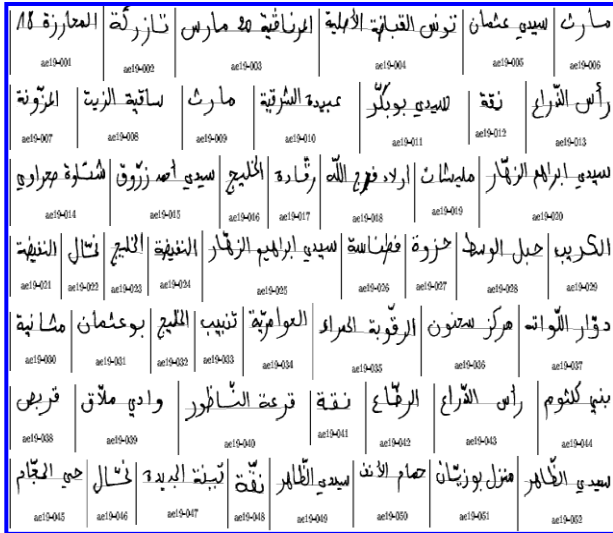 المعارزة 18
ae19-001
تازركة
ae19-002
المرناقية 20 مارس
ae19-003
تونس القباضة الأصلية
ae19-004
سيدي عثمان
ae19-005
مارث
ae19-006
المزّونة
ae19-007
ساقية الزيت
ae19-008
مارث
ae19-009
عبيدة الشرقية
ae19-010
سيدي بوبكّر
ae19-011
نقة
ae19-012
رأس الذّراع
ae19-013
شتاوة صحراوي
ae19-014
سيدي أحمد زرّوق
ae19-015
الخليج
ae19-016
رقّادة
ae19-017
أولاد فرج اللّه
ae19-018
مليشات
ae19-019
سيدي ابراهيم الزهّار
ae19-020
النفيضة
ae19-021
غنّال
ae19-022
الخليج
ae19-023
النفيضة
ae19-024
سيدي ابراهيم الزهّار
ae19-025
فطناسة
ae19-026
حزوة
ae19-027
جبل الوسط
ae19-028
الكريب
ae19-029
مشانية
ae19-030
بوعثمان
ae19-031
الخليج
ae19-032
تنبيب
ae19-033
العوامريّة
ae19-034
الرقّوبة الحمراء
ae19-035
مركز سحنون
ae19-036
دوّار اللّواته
ae19-037
قربص
ae19-038
وادي ملاّق
ae19-039
قرعة النّاظور
ae19-040
نقة
ae19-041
الرضّاع
ae19-042
رأس الذّراع
ae19-043
بني كلثوم
ae19-044
حي الحجّام
ae19-045
غنّال
ae19-046
تبينة الجديدة
ae19-047
نقّة
ae19-048
سيدي الظّاهر
ae19-049
حمام الأنف
ae19-050
منزل بوزيّان
ae19-051
سيدي الظّاهر
ae19-052